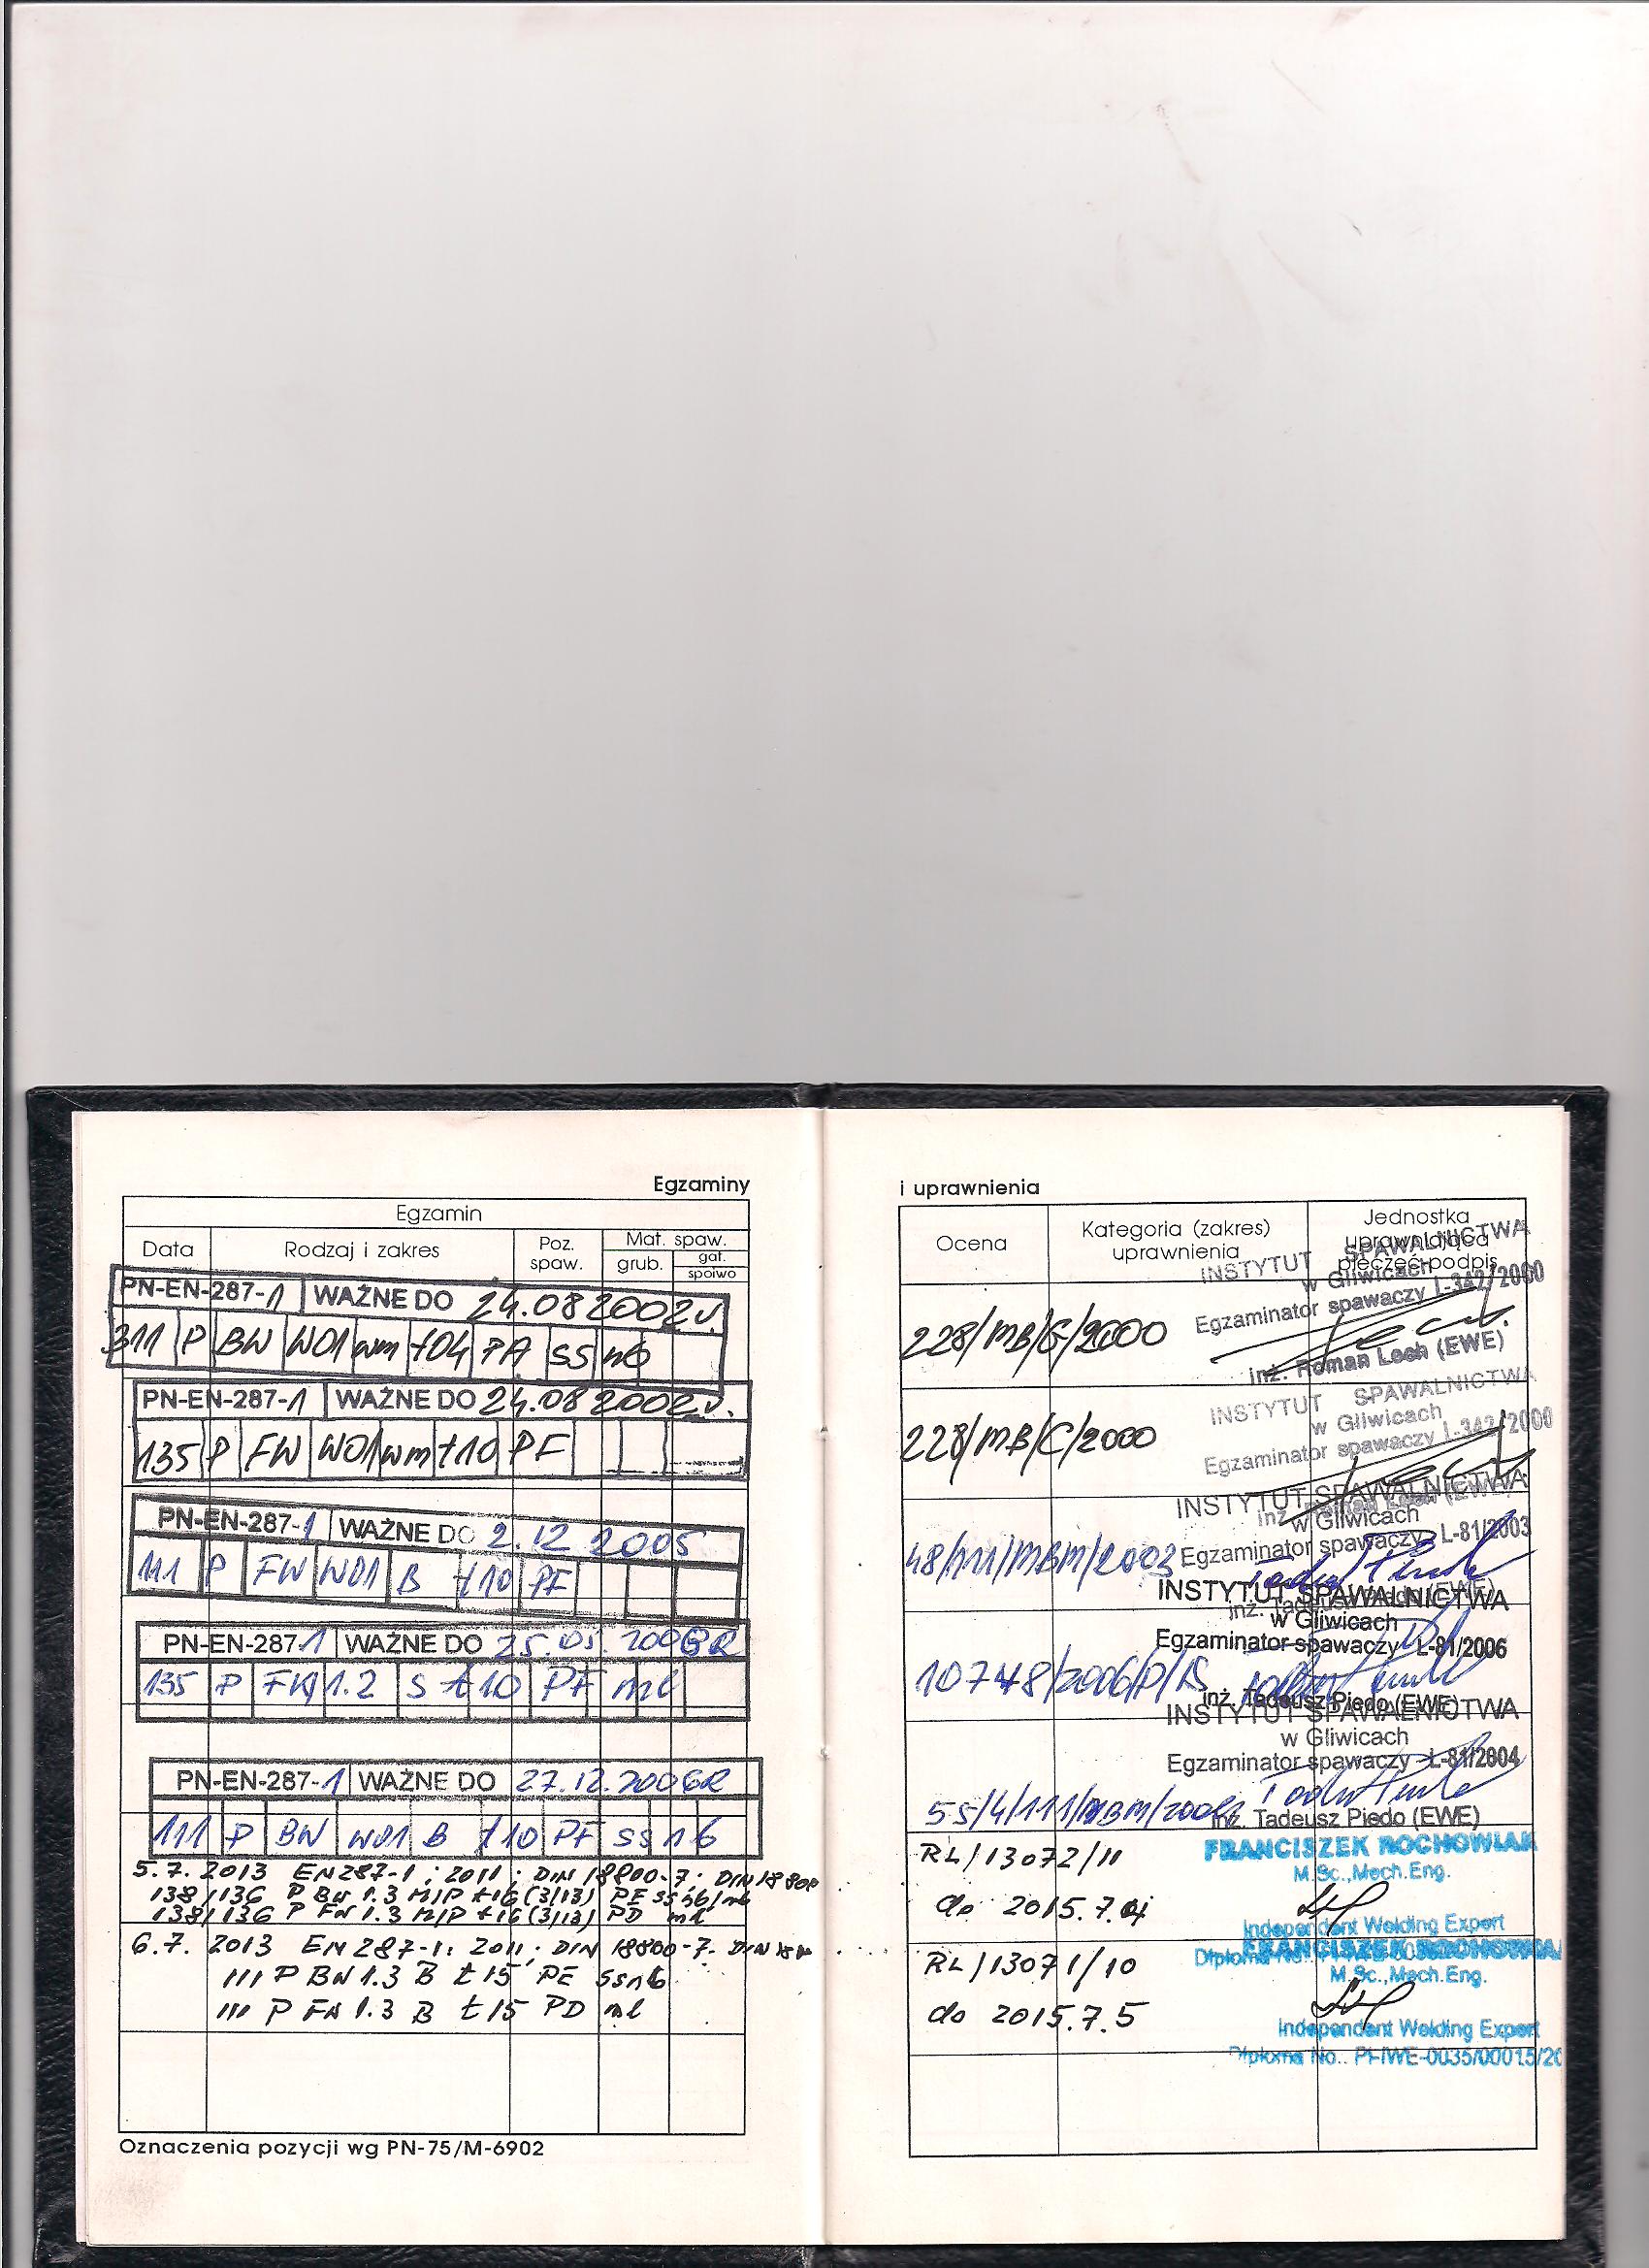 Egzaminy
Egzamin
Data
Rodzaj i zakres
Poz. spaw.
Mat. spaw.
grub.
gat.
spoiwo
PN-EN-287-1 WAŻNE DO 24.08 2002r.
311 P BW W01 wm t04 PA SS nb
PN-EN-287-1 WAŻNE DO 24.08 2002r.
135 P FW W01 wm t10 PF
PN-EN-287-1 WAŻNE DO 2.12 2005
111 P FW W01 B t10 PF
PN-EN-287-1 WAŻNE DO 25.05.2006R
135 P FW 1.2 S t10 PF ml
PN-EN-287-1 WAŻNE DO 27.12.2006R
111 P BW W01 B t10 PF SS nb
5.7.2013 EN287-1:2011; DIN 18800-7; DIN
138/136 P BW 1.3 M/P t16 (3/13) PE ss nb/mb
138/136 P FW 1.3 M/P t16 (3/13) PD ml
6.7.2013 EN 287-1:2011; DIN 18800-7. DIN
111 P BW 1.3 B t15 PE ssnb
111 P FW 1.3 B t15 PD ml
Oznaczenia pozycji wg PN-75/M-6902
i uprawnienia
Ocena
Kategoria (zakres) uprawnienia
Jednostka
uprawniająca
pieczęć podpis
INSTYTUT SPAWALNICTWA
w Gliwicach
Egzaminator spawaczy L-342/2000
228/MB/G/2000
inż. Roman Loch (EWE)
INSTYTUT SPAWALNICTWA
w Gliwicach
Egzaminator spawaczy L-342/2000
228/MB/C/2000
INSTYTUT SPAWALNICTWA
w Gliwicach
Egzaminator spawaczy L-81/2003
48/111/MBM/2003
INSTYTUT SPAWALNICTWA
w Gliwicach
Egzaminator spawaczy L-81/2006
10748/2006/P/IS
inż. Tadeusz Piedo (EWE)
INSTYTUT SPAWALNICTWA
w Gliwicach
Egzaminator spawaczy L-81/2004
55/4/111/MBM/2004
inż. Tadeusz Piedo (EWE)
RL/13072/11
FRANCISZEK ROCHOWIAK
M.Sc.,Mech.Eng.
do 2015.7.4
Independent Welding Expert
RL/13071/10
FRANCISZEK ROCHOWIAK
M.Sc.,Mech.Eng.
do 2015.7.5
Independent Welding Expert
Diploma No.. PI-IWE-0035/00015/20